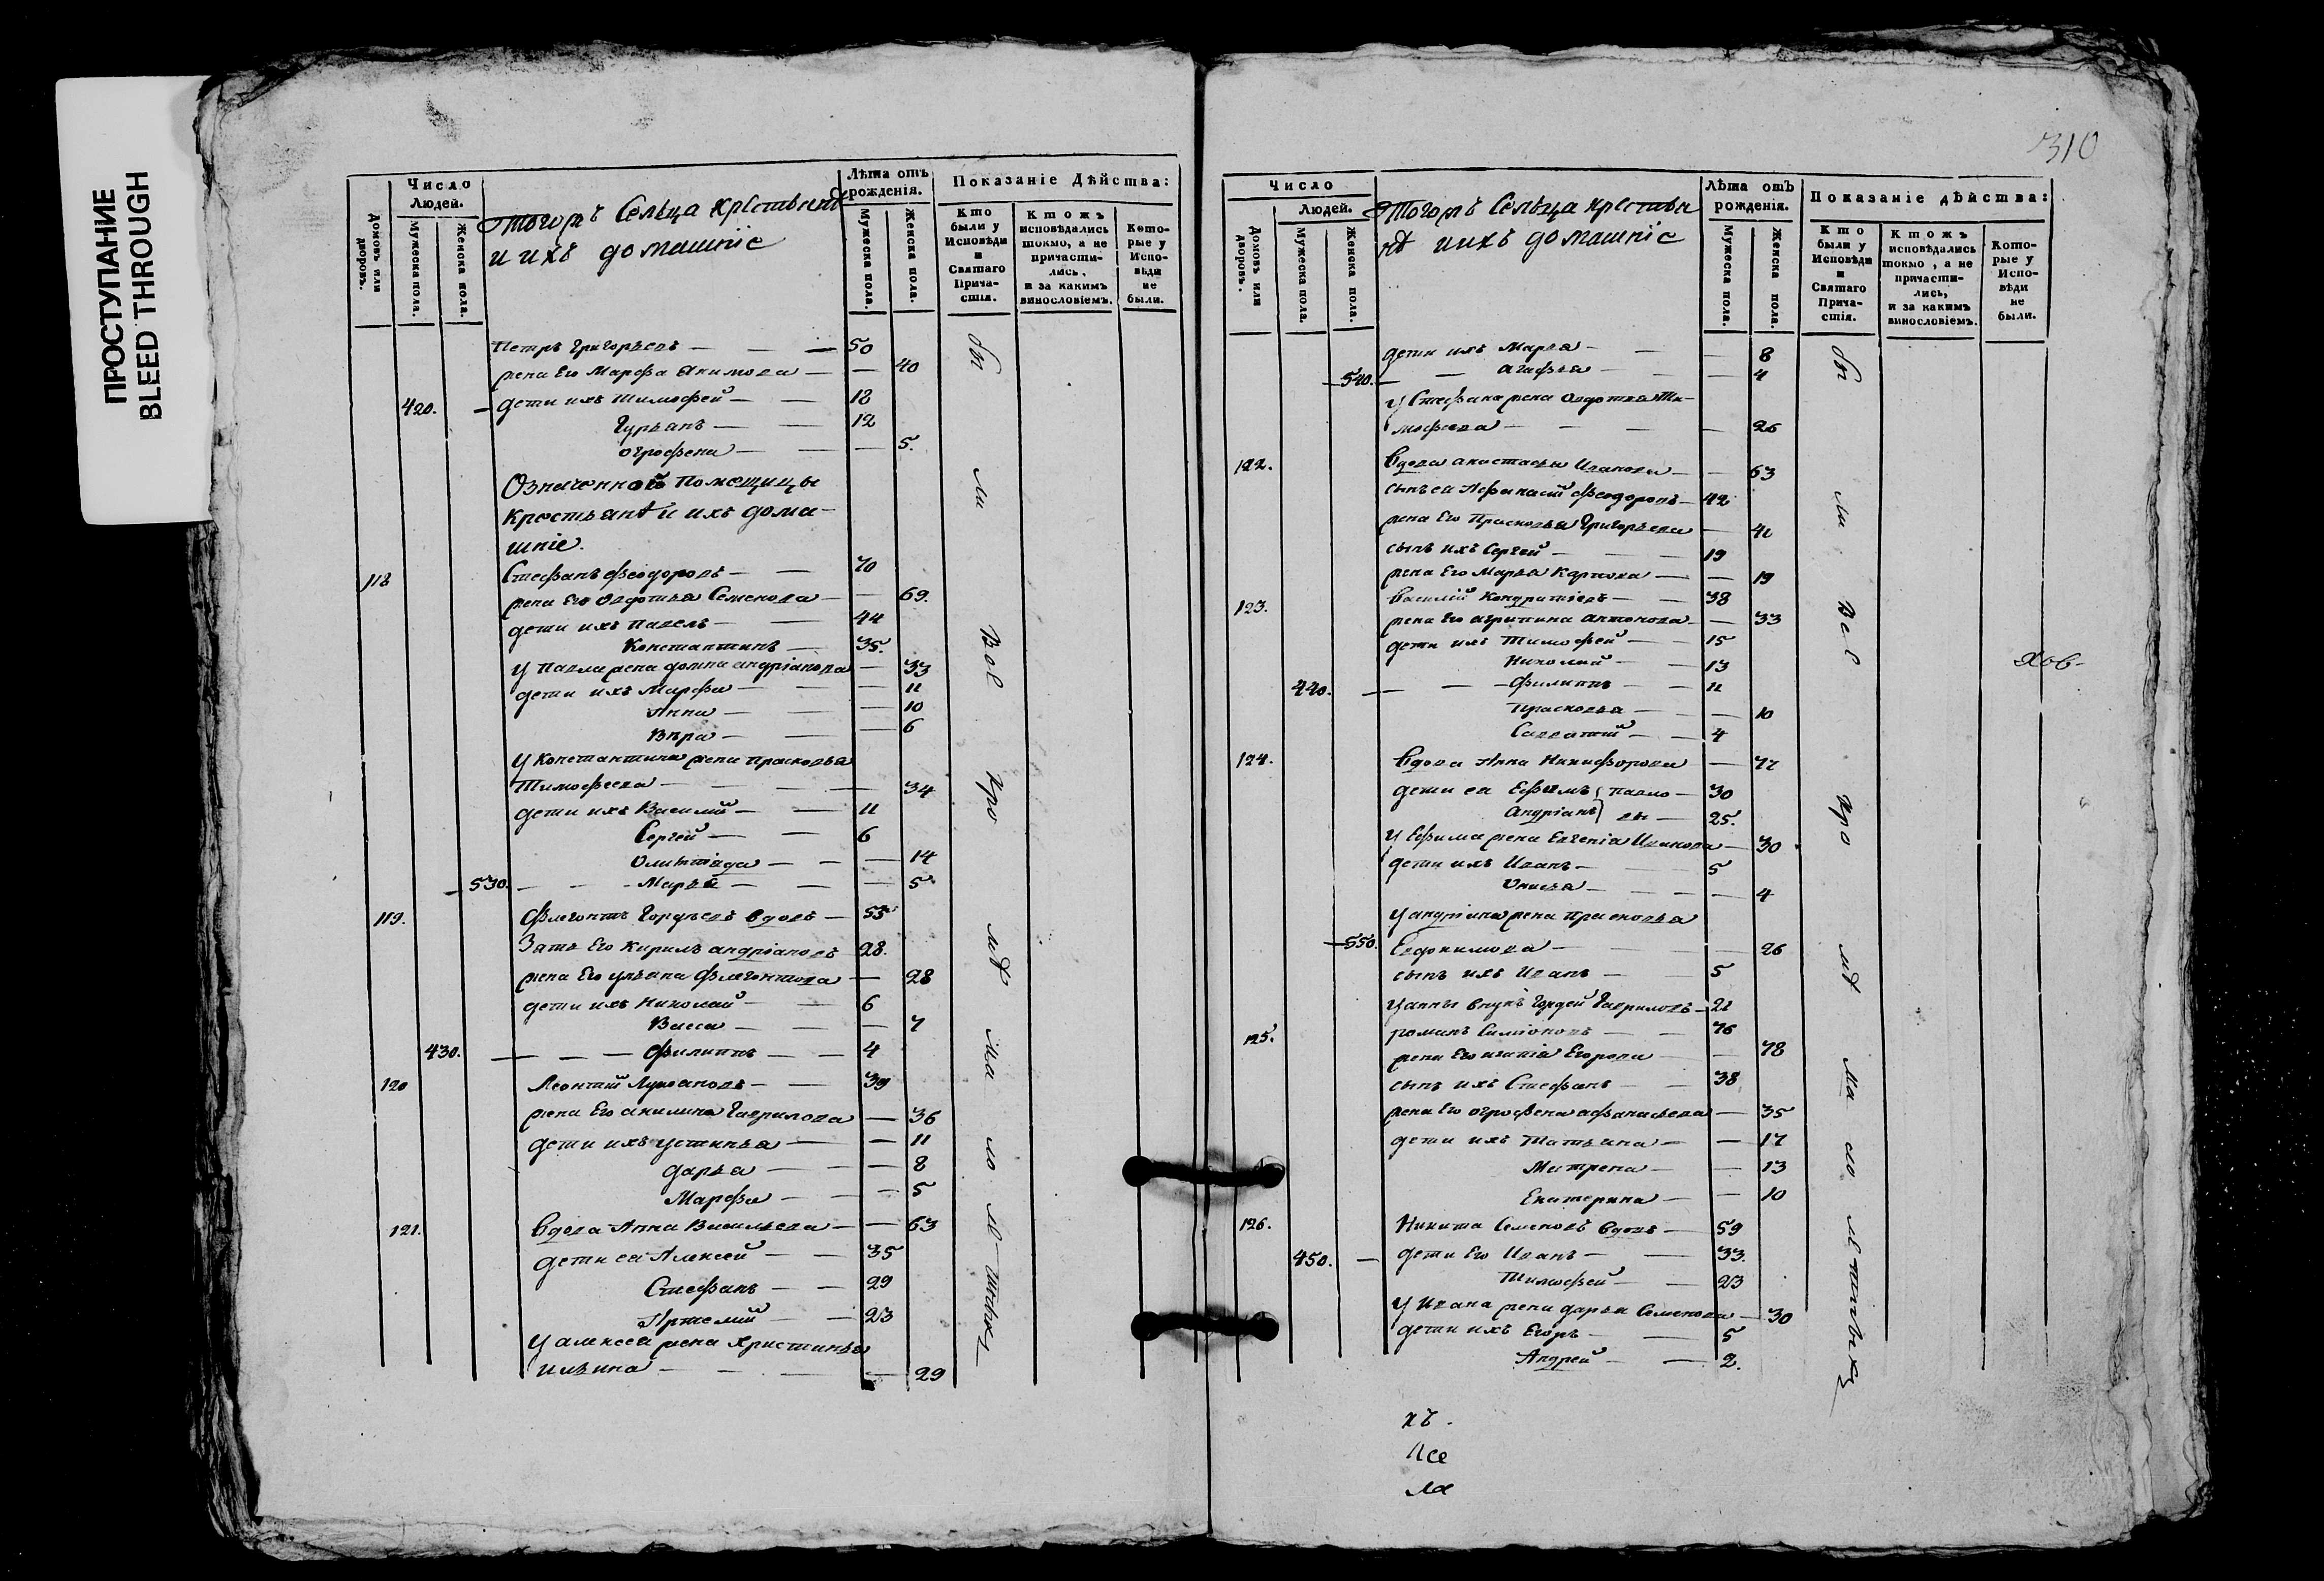 ПРОСТУПАНИЕ
BLEED THROUGH
310
Число
Людей.
Лѣта отъ
рожденія.
Показаніе Дѣйства:
Домовъ или
дворовъ.
Мужеска пола.
Женска пола.
тогожъ Сельца крестьянѣ
и ихъ домашніе
Мужеска пола.
Женска пола.
Кто
были у
Исповѣди
и
Святаго
Прича-
стія.
Ктожъ
исповѣдались
токмо, а не
причасти-
лись,
и за какимъ
винословіемъ.
Кото-
рые у
Испо-
вѣди
не
были.
Петръ Григорьевъ — 50
жена Его Марфа Якимова — 40
420. дети ихъ Тимофей — 18
Гурьянъ — 12
огрофена — 5.
Означенной Помещицы
крестьянѣ и ихъ дома-
шніе.
118 Стефанъ Феодоровъ — 70
жена Его Овдотья Семенова — 69.
дети ихъ Павелъ — 44
Константинъ — 35.
у Павла жена домна андріанова — 33
дети ихъ Марфа — 11
Анна — 10
Вѣра — 6
у Константина жена прасковья
Тимофеева — 34
дети ихъ Василій — 11
Сергей — 6
Олимпіада — 14
530. Марья — 5
119. Флегонтъ Гордѣевъ вдовъ — 55
Зять Его Кирилъ андріановъ 28.
жена Его ульяна Флегонтова — 28
дети ихъ Николай — 6
Васса — 7
430. Филиппъ — 4
120 Леонтій Лукоановъ — 39
жена Его акилина Гаврилова — 36
дети ихъ устинья — 11
дарья — 8
Марфа — 5
121. Вдова Анна Васильева — 63
дети ея Алексей — 35
Стефанъ — 29
Артемій — 23
у алексея жена Христинья
ильина — 29
бы
ли
Все
про
мѣ
ма
ло
лѣтныхъ
Число
Людей.
Лѣта отъ
рожденія.
Показаніе дѣйства:
Домовъ или
дворовъ.
Мужеска пола.
Женска пола.
Тогожъ Сельца крестья
нѣ и ихъ домашніе
Мужеска пола.
Женска пола.
Кто
были у
Исповѣди
и
Святаго
Прича-
стія.
Ктожъ
исповѣдались
токмо, а не
причасти-
лись,
и за какимъ
винословіемъ.
Кото-
рые у
Испо-
вѣди
не
были.
дети ихъ Марья — 8
540. — агафья — 4
у Стефана жена Овдотья Ти-
мофеева — 26
122. Вдова анастасья Иванова — 63
сынъ ея Афанасій Феодоровъ — 42
жена Его Прасковья Григорьева — 41
сынъ ихъ Сергей — 19
жена Его Марья Карпова — 19
123. Василій Кондратіевъ — 38
жена Его агрипина антонова — 33
дети ихъ Тимофей — 15
Николай — 13
440. — Филиппъ — 11
Прасковья — 10
Савватій — 4
124. Вдова Анна Никифорова — 77
дети ея Ефимъ Павло — 30
Андріанъ вы — 25.
у Ефима жена Евгенія Иванова — 30
дети ихъ Иванъ — 5
Онисья — 4
у андріана жена прасковья
550. Евдокимова — 26
сынъ ихъ Иванъ — 5
у анны внукъ Гордей Гавриловъ — 21
125. романъ Симіоновъ — 76
жена Его Егорова — 78
сынъ ихъ Стефанъ — 38
жена Его огрофена афанасьева — 35
дети ихъ Татьяна — 17
Матрена — 13
Екатерина — 10
126. Никита Семеновъ вдовъ — 59
450. — дети Его Иванъ — 33.
Тимофей — 23
У Ивана жена дарья Семенова — 30
дети ихъ Егоръ — 5
Андрей — 2.
бы
ли
Все
про
мѣ
ма
ло
лѣтныхъ
хъ.